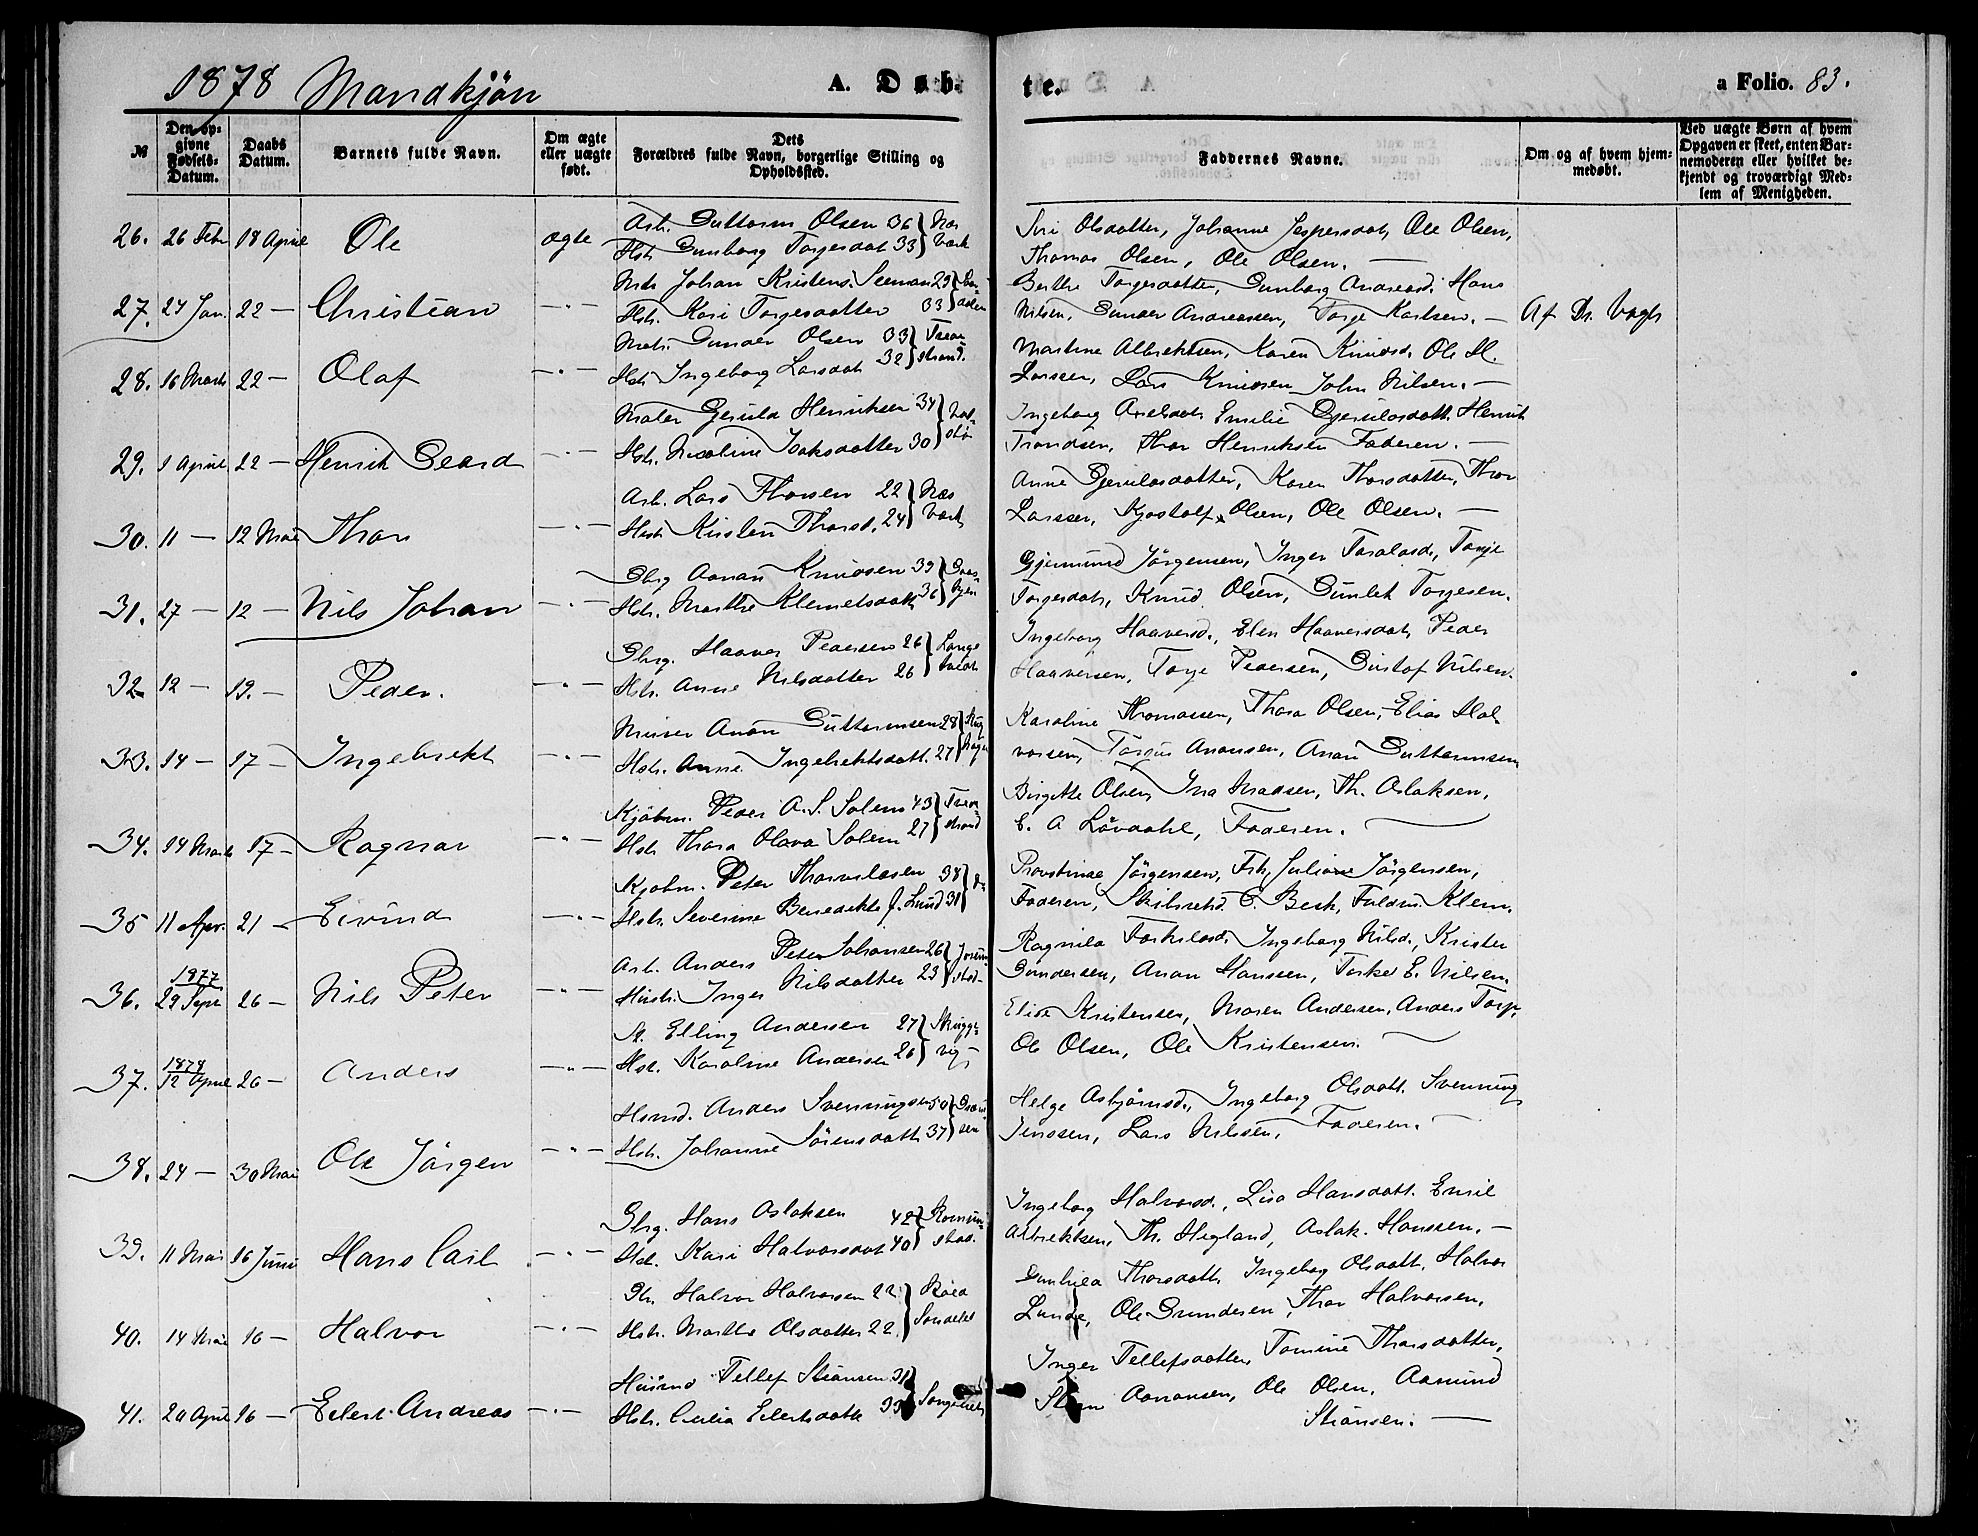 1878 Mandkjön A. Døb- te. a Folio. 83.
№ Den op-givne Fødsels-Datum. Daabs Datum. Barnets fulde Navn. Om ægte eller uægte født. Dets Forældres fulde Navn, borgerlige Stilling og Opholdssted. Faddernes Navne. Om og af hvem hjem-medøbt. Ved uægte Børn af hvem Opgaven er skeet, enten Bar-nemoderen eller hvilket be-kjendt og troværdigt Med-lem af Menigheden.
26. 26 Febr 18 April Ole ægte Arb. Guttorm Olsen 36 Næs
Hst. Gunborg Torjesdat 33 Værk
Siri Olsdatter, Johanne Jespersdat, Ole Olsen,
Thomas Olsen, Ole Olsen. —
27. 24 Jan. 22 — Christian —"— Johan Kristens. Seeman 29
Hst. Kari Torjesdatter 33
Berthe Torjesdatter, Gunborg Andreasd. Hans
Nilsen, Gunder Andreassen, Torje Karlsen. — Af Dr. Vogt
28. 16 Marts 22 — Olaf —"— Gunder Olsen 33 Tvede
Hst. Ingeborg Larsdat 32 strand.
Martine Albrektsen, Karen Knudsd. Ole H.
Larssen, Lars Knudsen John Nilsen. —
29. 9 April 22 — Henrik Geard —"— Maler Gjeruld Henriksen 34
Hst. Nicoline Isaksdatter 30
Ingeborg Axelsdat, Emilie Gjeruldsdatt. Henrik
Trondsen, Thor Henriksen Faderen. —
30. 11 — 12 Mai Thor —"— Arb. Lars Thorsen 22 Næs
Hst. Kirsten Thorsd. 24 Værk
Anne Gjeruldsdatter, Karen Thorsdatter, Thor
Larssen, Kjostolf Olsen, Ole Olsen. —
31. 27 — 12 — Nils Johan —"— Gbrg Aanan Knudsen 39
Hst. Marthe Klemetsdatt 36
Gjermund Jörgensen, Inger Taraldsd., Torje
Torjesdatt, Knud Olsen, Gunlek Torjesen.
32 12 — 19. — Peder. —"— Gbrg. Haaver Pedersen 26 Lange
Hst. Anne Nilsdatter 26
Ingeborg Haaversd., Elen Haaversdat, Peder
Haaversen, Torje Pedersen, Gustaf Nilsen.
33. 14 — 17 — Ingebrekt —"— Murer Anon Guttormsen 28
Hst. Anne Ingebrektsdatt. 27
Karoline Thomassen, Thora Olsen, Elias Hal
vorsen, Torjus Anonsen, Anon Guttormsen
34. 14 Marts 17 — Ragnar —"— Kjöbm. Peder A. S. Solem 43 Tvede
Hst. Thora Olava Solem 27 strand
Birgitte Olsen, Ina Madsen, Th. Aslaksen,
E. A Lövdahl, Faderen. —
35 11 Apr. 21 — Eivind —"— Kjøbm. Peter Thorvaldsen 38
Hst. Severine Benedikte J. Lund 31
Provstinde Jörgensen, Frk. Juliane Jörgensen,
Faderen, E. Bech, Klem.
1877
36. 29 Sept 26 — Nils Peter —"— Arb. Anders Peter Johansen 26
Hustr. Inger Nilsdatter 23
Ragnild Torkilsd. Ingeborg Nilsd., Krister
Gundersen, Anon Hanssen, Torkel E. Nilsen.
1878
37. 12 April 26 — Anders —"— St. Elling Andersen 27
Hst. Karoline Andersen 26
Elise Kristensen, Maren Andersen, Anders Torje
Ole Olsen, Ole Kristensen. —
38. 24 — 30 Mai Ole Jörgen —"— Husmd. Anders Svenningsen 50
Hst. Johanne Sörensdatt 37
Helge Asbjörnsd., Ingeborg Olsdatt. Svenning
Jenssen, Lars Nilssen, Faderen. —
39. 11 Mai 16 Juni Hans Carl —"— Gbrg. Hans Aslaksen 42
Hst. Kari Halvorsdat 40
Ingeborg Halvorsd., Lisa Hansdatt. Emil
Albrektsen, Th. Hegland, Aslak Hanssen. —
40. 14 Mai 16 — Halvor —"— Halvor Halvorsen 22 Röed
Hst. Marthe Olsdatter 22 Söndeled
Gunhild Thorsdatt, Ingeborg Olsdatt, Halvor
Lunde, Ole Gundersen, Thor Halvorsen.
41. 20 April 16 — Eilert Andreas —"— Husmd Tellef Stiansen 31
Hst. Cecilia Eilertsdatte 33
Inger Tellefsdatter, Tomine Thorsdatter,
Aanonsen, Ole Olsen, Aamund
Stiansen. —